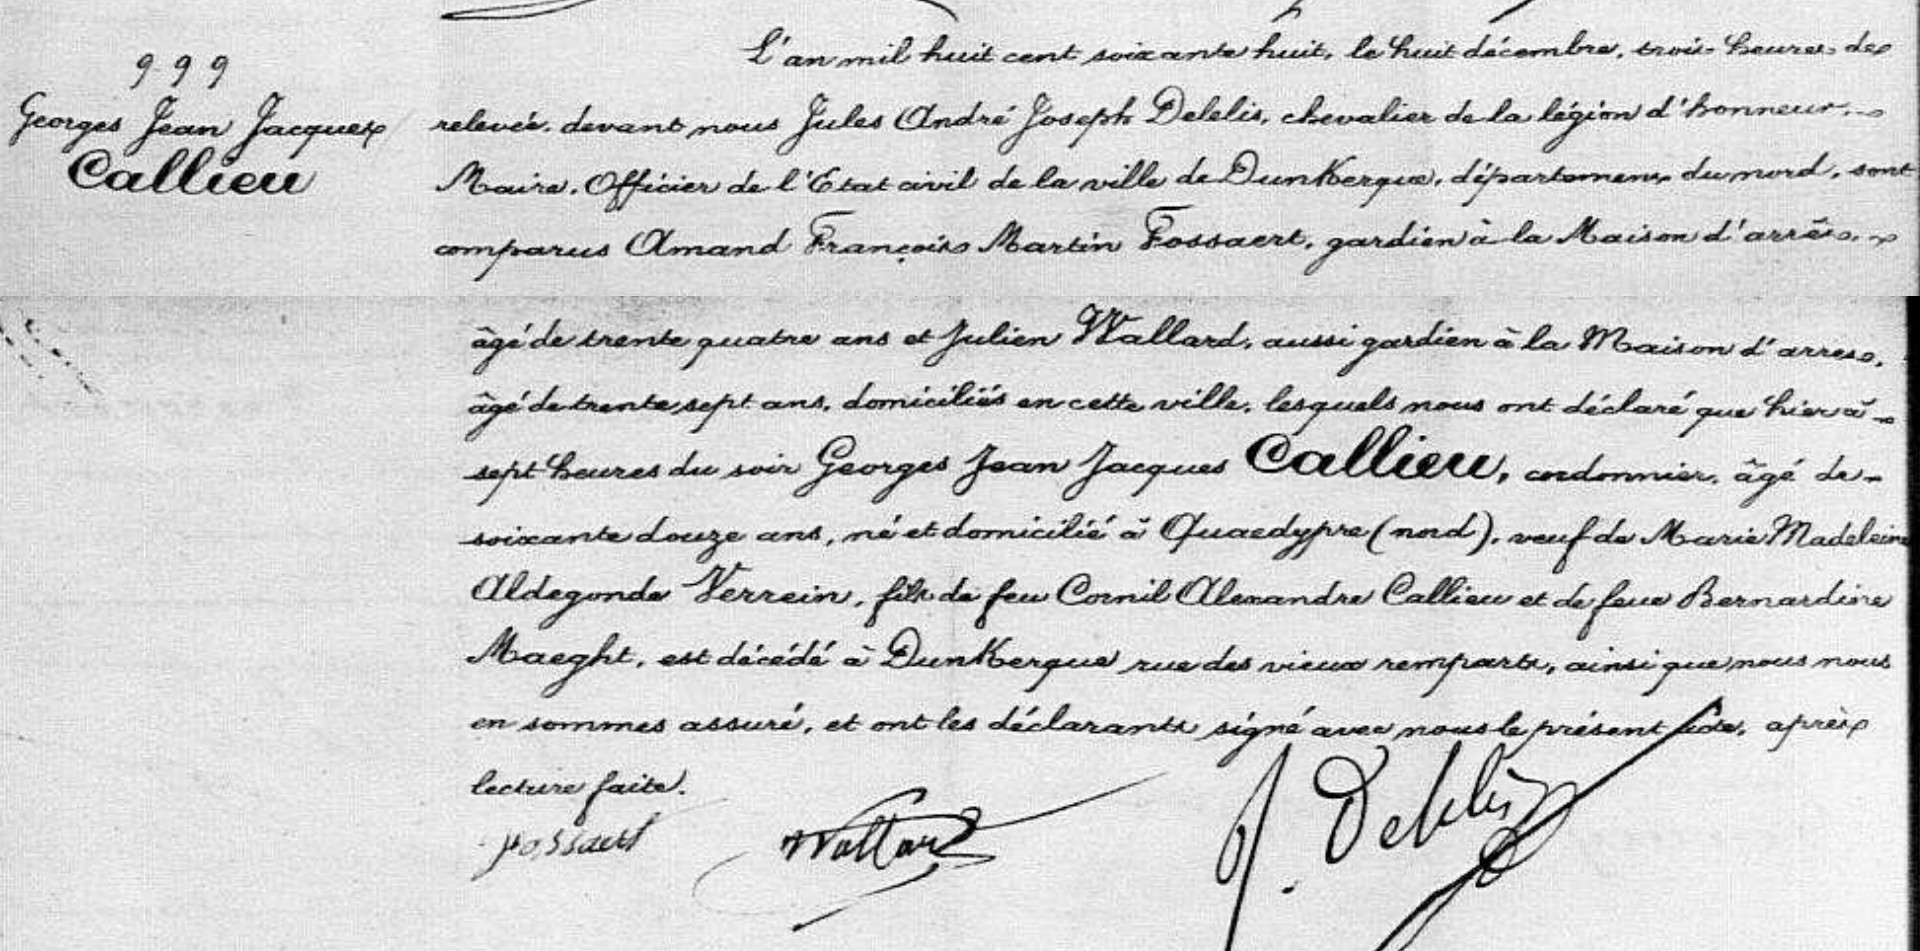 999
Georges Jean Jacques
Callieu
L'an mil huit cent soixante huit, le huit décembre, trois heures de
relevée, devant nous Jules André Joseph Delelis, chevalier de la légion d'honneur,
Maire, Officier de l'Etat civil de la ville de Dunkerque, département du nord, sont
comparus Amand François Martin Fossaert, gardien à la Maison d'arrêt,
âgé de trente quatre ans et Julien Wallard, aussi gardien à la Maison d'arret,
âgé de trente sept ans, domiciliés en cette ville, lesquels nous ont déclaré que hier à
sept heures du soir Georges Jean Jacques Callieu, cordonnier, âgé de
soixante douze ans, né et domicilié à Quaedypre (nord), veuf de Marie Madeleine
Aldegonde Verrein, fils de feu Cornil Alexandre Callieu et de feue Bernardine
Maeght, est décédé à Dunkerque rue des vieux remparts, ainsi que nous nous
en sommes assuré, et ont les déclarants signé avec nous le présent acte, après
lecture faite.
Fossaert Wallard J. Delelis